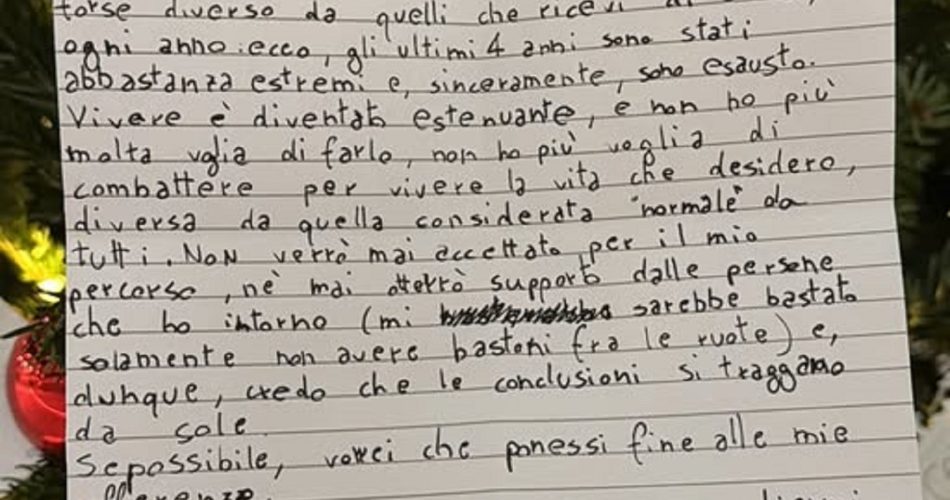 forse diverso da quelli che ricevi
ogni anno: ecco, gli ultimi 4 anni sono stati
abbastanza estremi e, sinceramente, sono esausto.
Vivere è diventato estenuante, e non ho più
molta voglia di farlo, non ho più voglia di
combattere per vivere la vita che desidero,
diversa da quella considerata "normale" da
tutti. Non verrò mai accettato per il mio
percorso, nè mai otterrò supporto dalle persone
che ho intorno (mi sarebbe bastato
solamente non avere bastoni fra le ruote) e,
dunque, credo che le conclusioni si traggano
da sole.
Se possibile, vorrei che ponessi fine alle mie